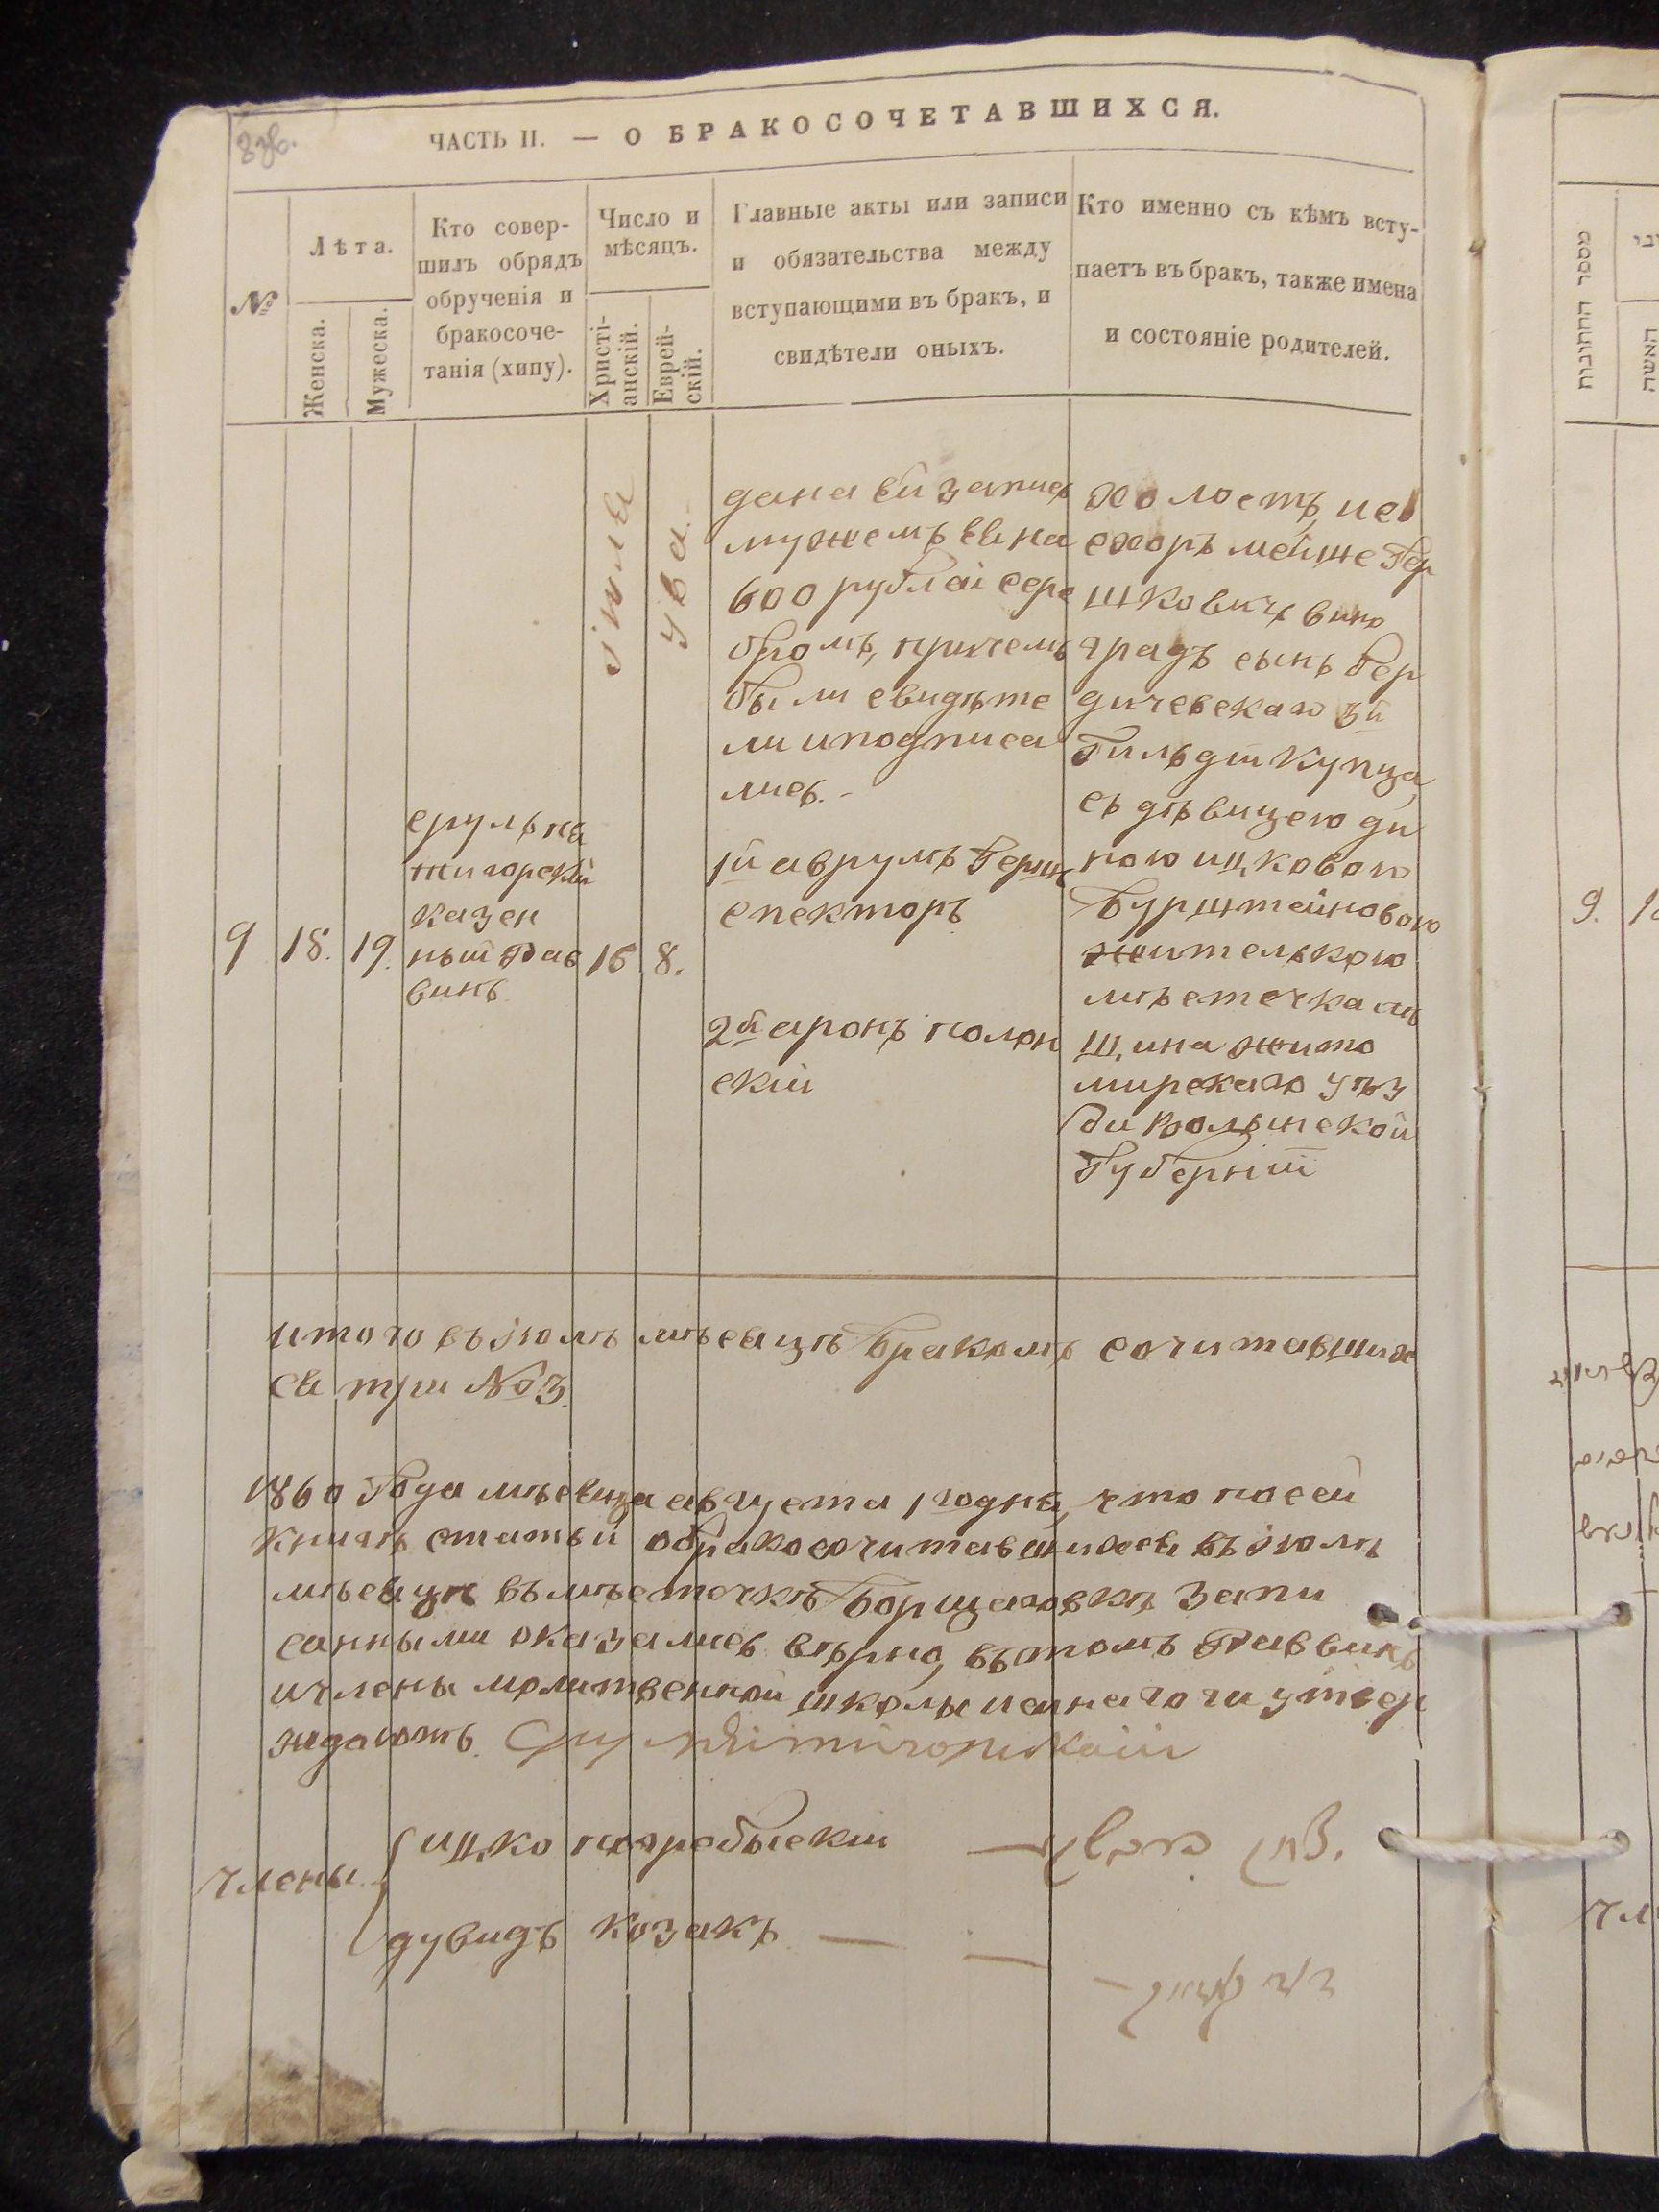 ЧАСТЬ II. — О БРАКОСОЧЕТАВШИХСЯ.
№
Лѣта.
Женска.
Мужеска.
Кто совер-
шилъ обрядъ
обрученія и
бракосоче-
танія (хипу).
Число и
мѣсяцъ.
Христі-
анскій.
Еврей-
скій.
Главные акты или записи
и обязательства между
вступающими въ бракъ, и
свидѣтели оныхъ.
Кто именно съ кѣмъ всту-
паетъ въ бракъ, также имена
и состояніе родителей.
9
18.
19.
сруль пя
тигорскій
казен
ный Рав
винъ
іюля
16
ува
8.
дана ей запись
мужемъ ея на
600 рублей сере
бромъ, причемъ
были свидѣте
ли и подписа
лись. -
1й аврумъ Герш
спекторъ
2й аронъ полон
скій
холостъ, ис
сохоръ мейше Гер
шковичъ вино
градъ сынъ бер
дичевскаго 3й
Гильдіи Купца,
съ дѣвицею ди
ною ицковою
Бурштейновою
жителькою
мѣстечка
жито
мирскаго уѣз
да Волынской
Губерніи
итого въ іюлѣ мѣсяцѣ бракомъ сочитавших
ся три №3.
1860 Года мѣсяца августа 1го дня, что по сей
книгѣ статьи о бракосочитавшихся въ іюлѣ
мѣсяцѣ въ мѣстечкѣ Борщаговкѣ Запи
санными оказались вѣрно, въ томъ Раввинъ
и члены молитвенной школы
ждаютъ.
члены
ицко погребыскій
дувидъ козакъ
מספר החתונות
האשה
9.